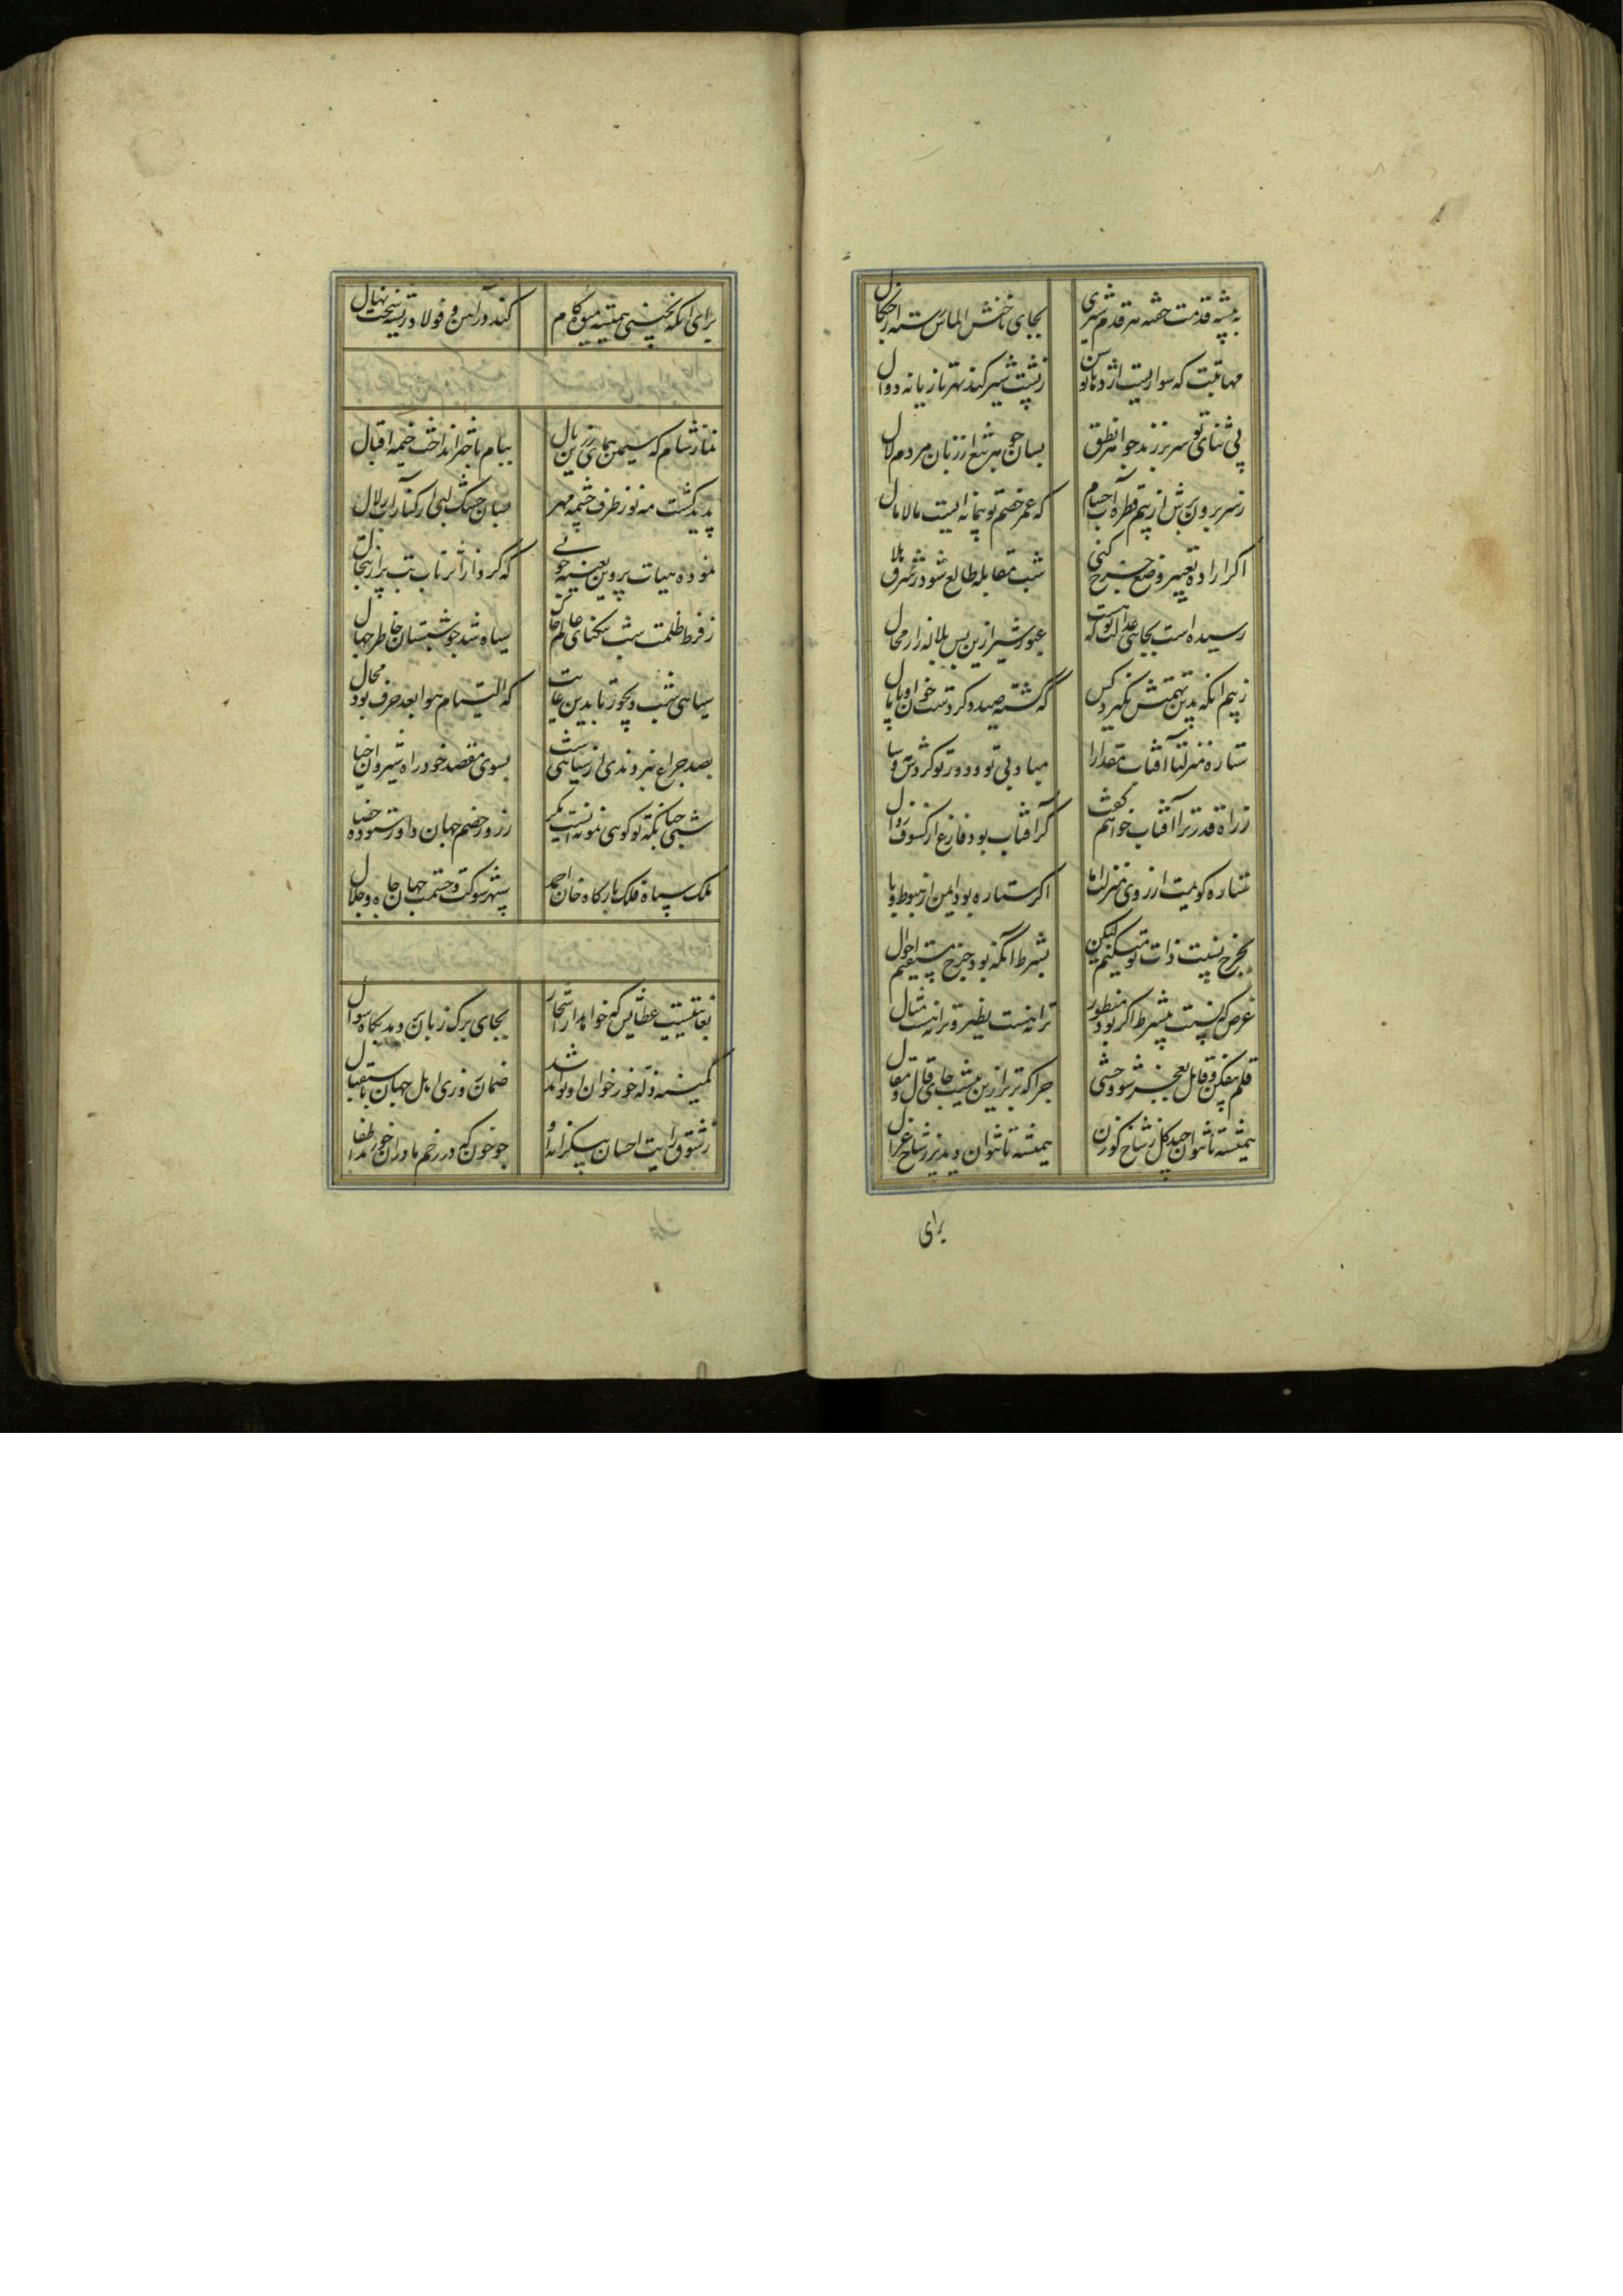 به بیشه قدمت خفته هر قدم شیری بجای ناخنش الماس رسته از چنگال
مهابتت که سواریست اژدها توسن ز پشت شیر کند بهر تازیانه دوال
پی ثنای تو سر بر زند جواهر نطق بسان جوهر تیغ از زبان مردم لال
ز سر برون برش از بیم قطره آب حسام که عمر خصم تو پیمانه ایست مالامال
اگر اراده تغییر وضع چرخ کنی شب مقابله طالع شود ز شرق هلال
رسیده است بجایی عدالت تو که هست عبور شیر ازین پس بلاله زار محال
ز بیم آنکه بدین تهمتش نگیرد کس که کشته صید و کرد دست خون او پامال
ستاره منزلتا آفتاب مقدارا مباد بی تو و دور تو گردش مه و سال
ز راه قدر ترا آفتاب خواهم گفت گر آفتاب بود فارغ از کسوف و زوال
ستاره گویمت از روی منزلت اما اگر ستاره بود ایمن از هبوط و وبال
بچرخ نسبت ذات تو میکنم لیکن بشرط آنکه بود چرخ مستقیم احوال
غرض که نسبت بیشرط اگر بود منظور ترا نه هست نظیر و ترا نه هست مثال
قلم بفکن و قایل بعجز شو وحشی چرا که برتر ازین نیست جای قال و مقال
همیشه تا نتوان چید گل ز شاخ گوزن همیشه تا نتوان دید بر ز شاخ غزال
برای
برای آنکه نچینی همیشه میوه کام کند در آهن و فولاد ریشه سخت نهال
نماز شام که سیمین همای زرین بال ببام باختر انداخت خیمه اقبال
پدید گشت مه نو ز طرف چشمه مهر بسان خشک لبی از کنار آب زلال
نموده هیات پروین بعینه چو نی که گرد از اثر تاب تب پر از تبخال
ز فرط ظلمت شب تنگنای عالم خاک سیاه شد چو شبستان خاطر جهال
سیاهی شب دیجور تا بدین غایت که التیام هوا بعد حرف بود محال
بصد چراغ نبردندی از سیاهی شب بسوی مقصد خود راه شبروان خیال
شبی چنانکه تو گویی نمونه ایست مگر ز روز خصم جهان داور ستوده خصال
ملک سپاه فلک بارگاه خان احمد سپهر شوکت و حشمت جهان جاه و جلال
بغایتیست عطایش که خواهد ار اشجار بجای برگ زبان بر دمد بگاه سوال
کمینه زله خور خوان او تواند شد ضمان روزی اهل جهان باستقبال
ز شوق رایت احسان بیکرانه او چو خون که در رحم مادران خورند اطفال